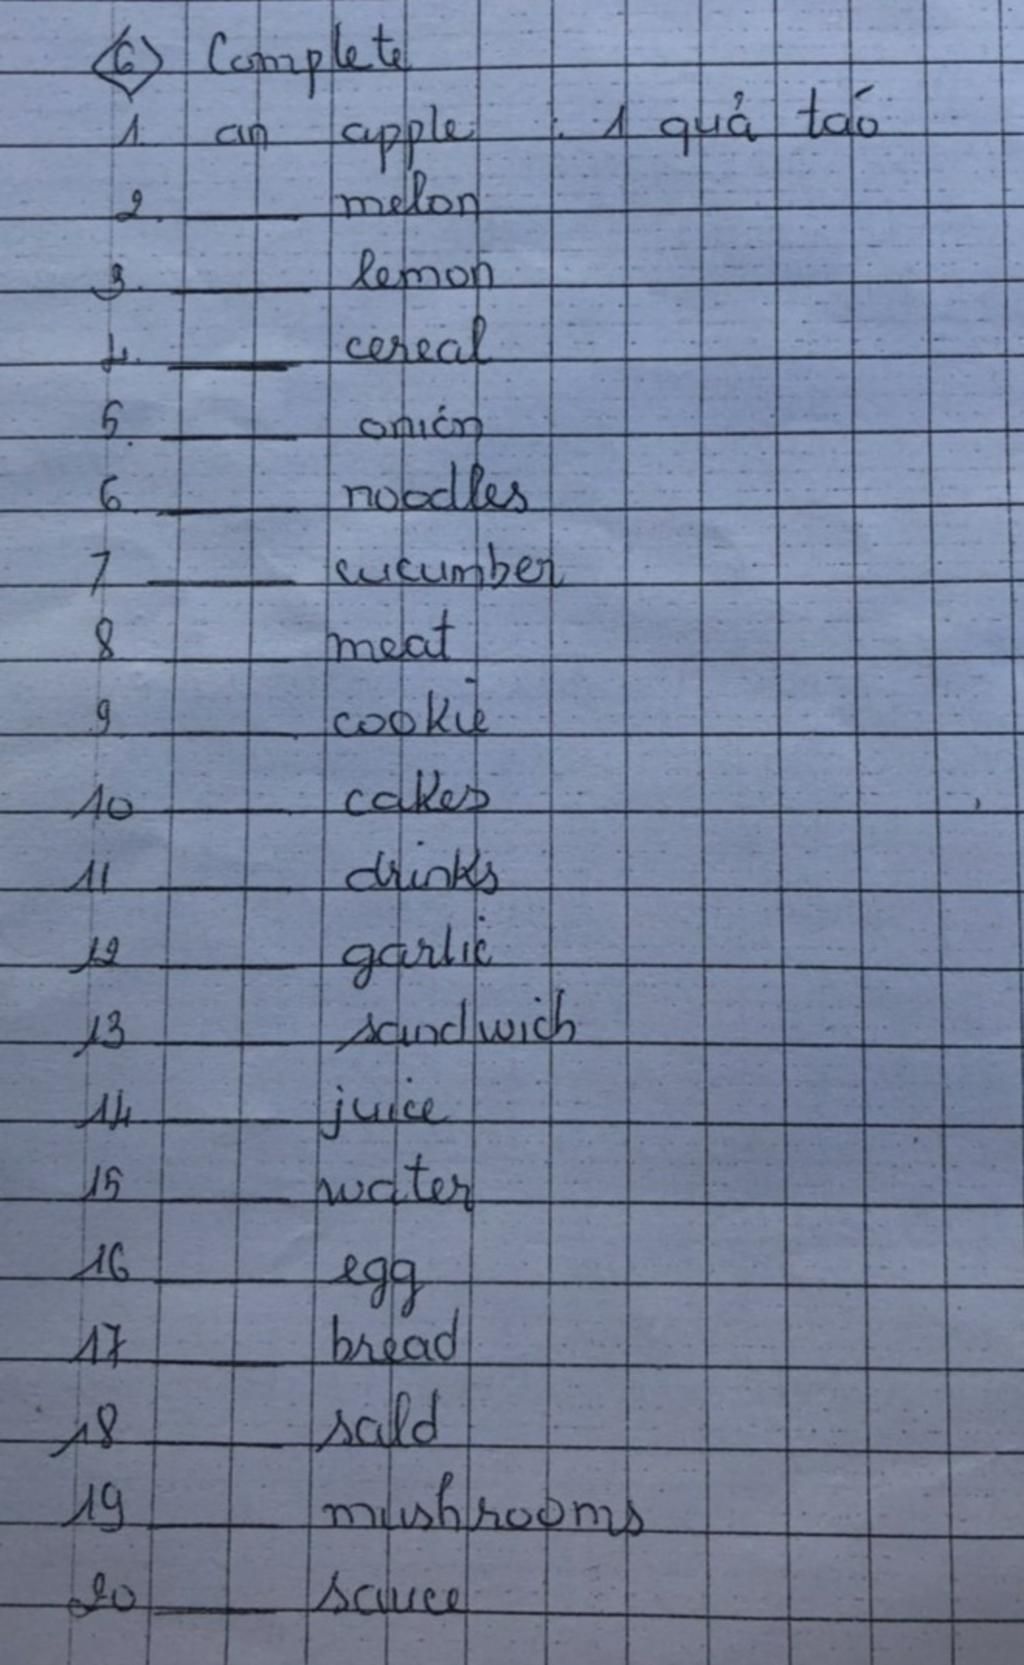 6 Complete
1. an apple : 1 quả táo
2. ____ melon
3. ____ lemon
4. ____ cereal
5. ____ onion
6 ____ noodles
7 ____ cucumber
8 ____ meat
9 ____ cookie
10 ____ cakes
11 ____ drinks
12 ____ garlic
13 ____ sandwich
14 ____ juice
15 ____ water
16 ____ egg
17 ____ bread
18 ____ sald
19 ____ mushrooms
20 ____ sauce